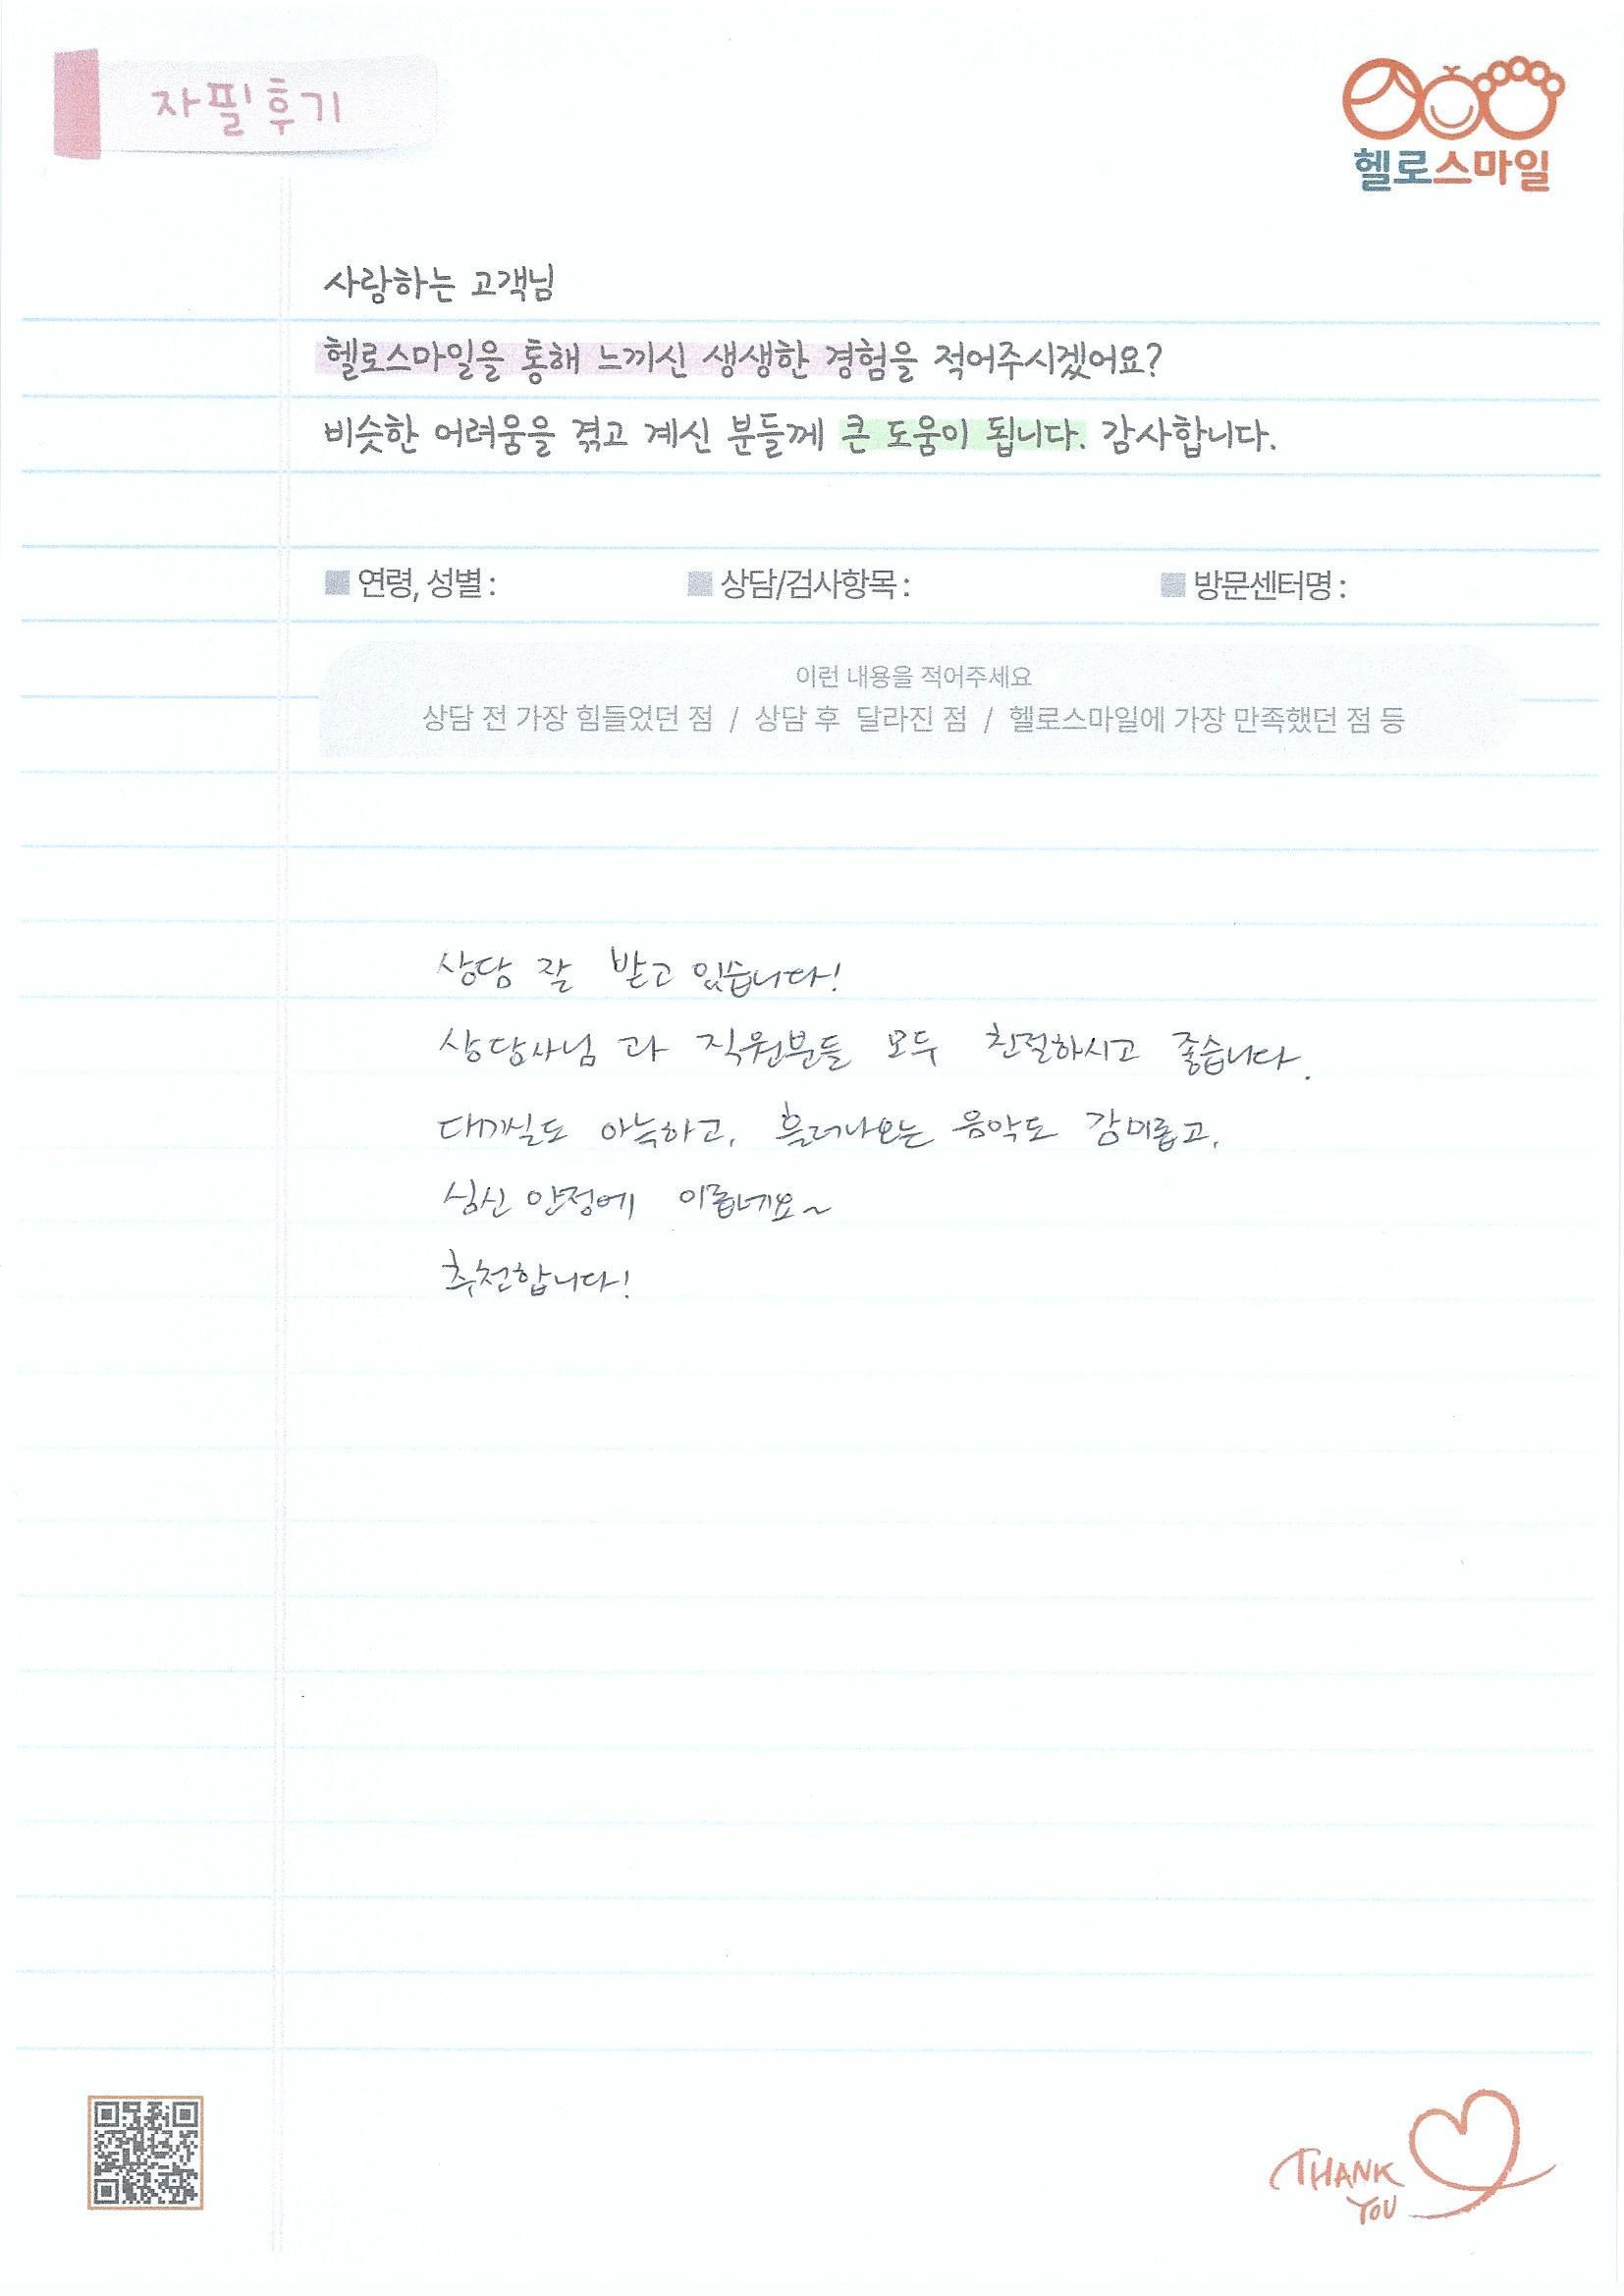 자필후기
헬로스마일
사랑하는 고객님
헬로스마일을 통해 느끼신 생생한 경험을 적어주시겠어요?
비슷한 어려움을 겪고 계신 분들께 큰 도움이 됩니다. 감사합니다.
■ 연령, 성별 : ■ 상담/검사항목 : ■ 방문센터명 :
이런 내용을 적어주세요
상담 전 가장 힘들었던 점 / 상담 후 달라진 점 / 헬로스마일에 가장 만족했던 점 등
상담 잘 받고 있습니다!
상담사님과 직원분들 모두 친절하시고 좋습니다.
대기실도 아늑하고, 흘러나오는 음악도 감미롭고,
심신 안정에 이롭네요~
추천합니다!
THANK
YOU